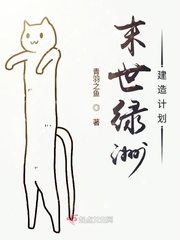 末世绿洲
建造计划
青羽之鱼 ◎ 著